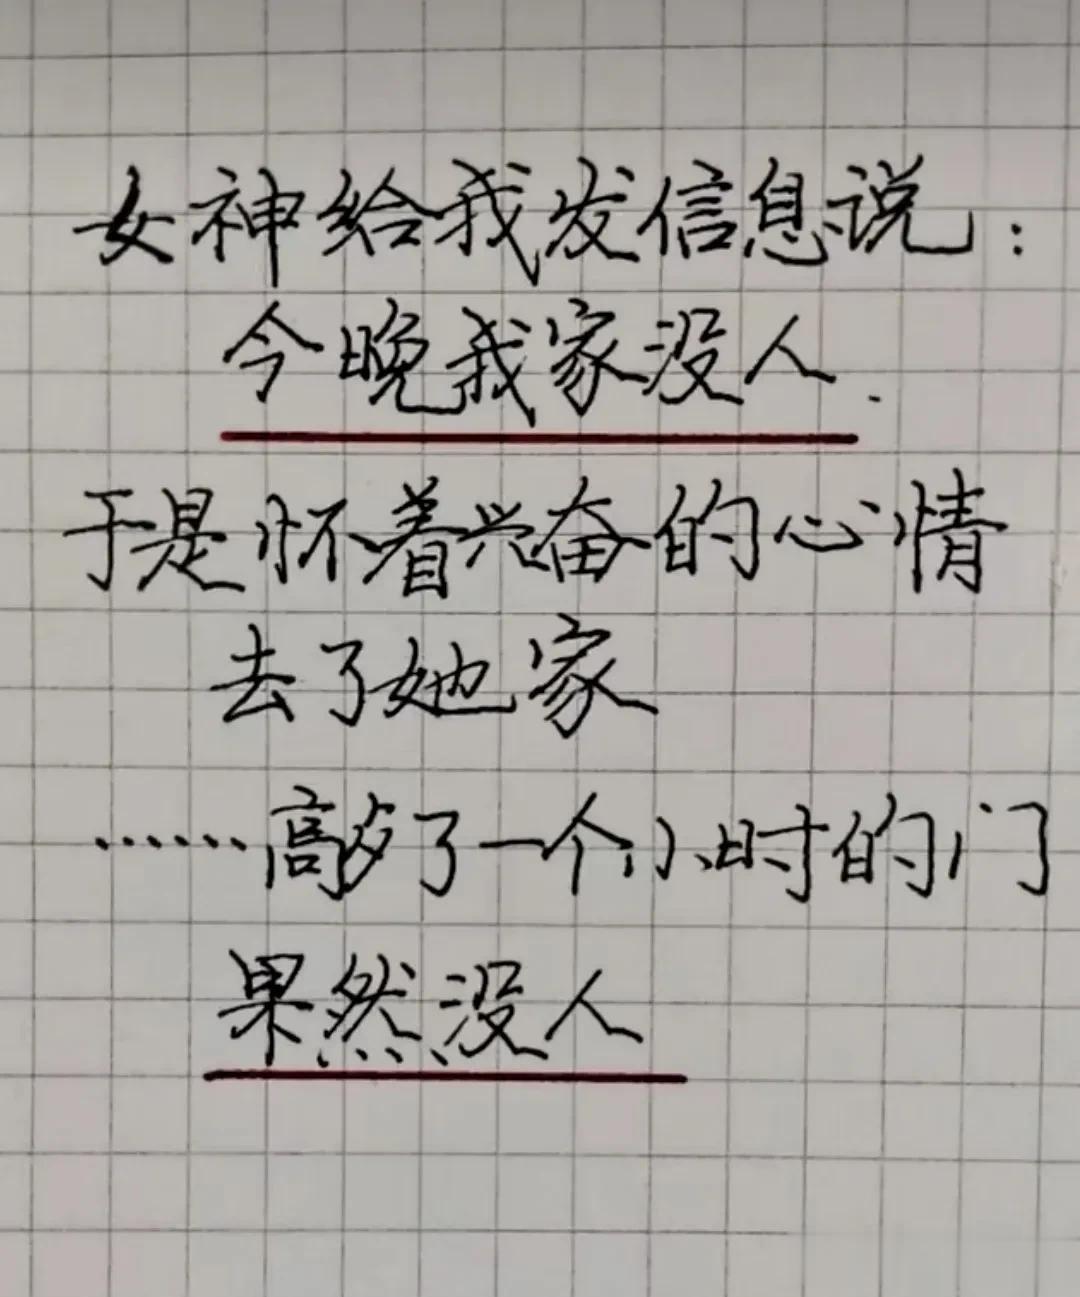 女神给我发信息说：
今晚我家没人.
于是怀着兴奋的心情
去了她家
……敲了一个小时的门
果然没人